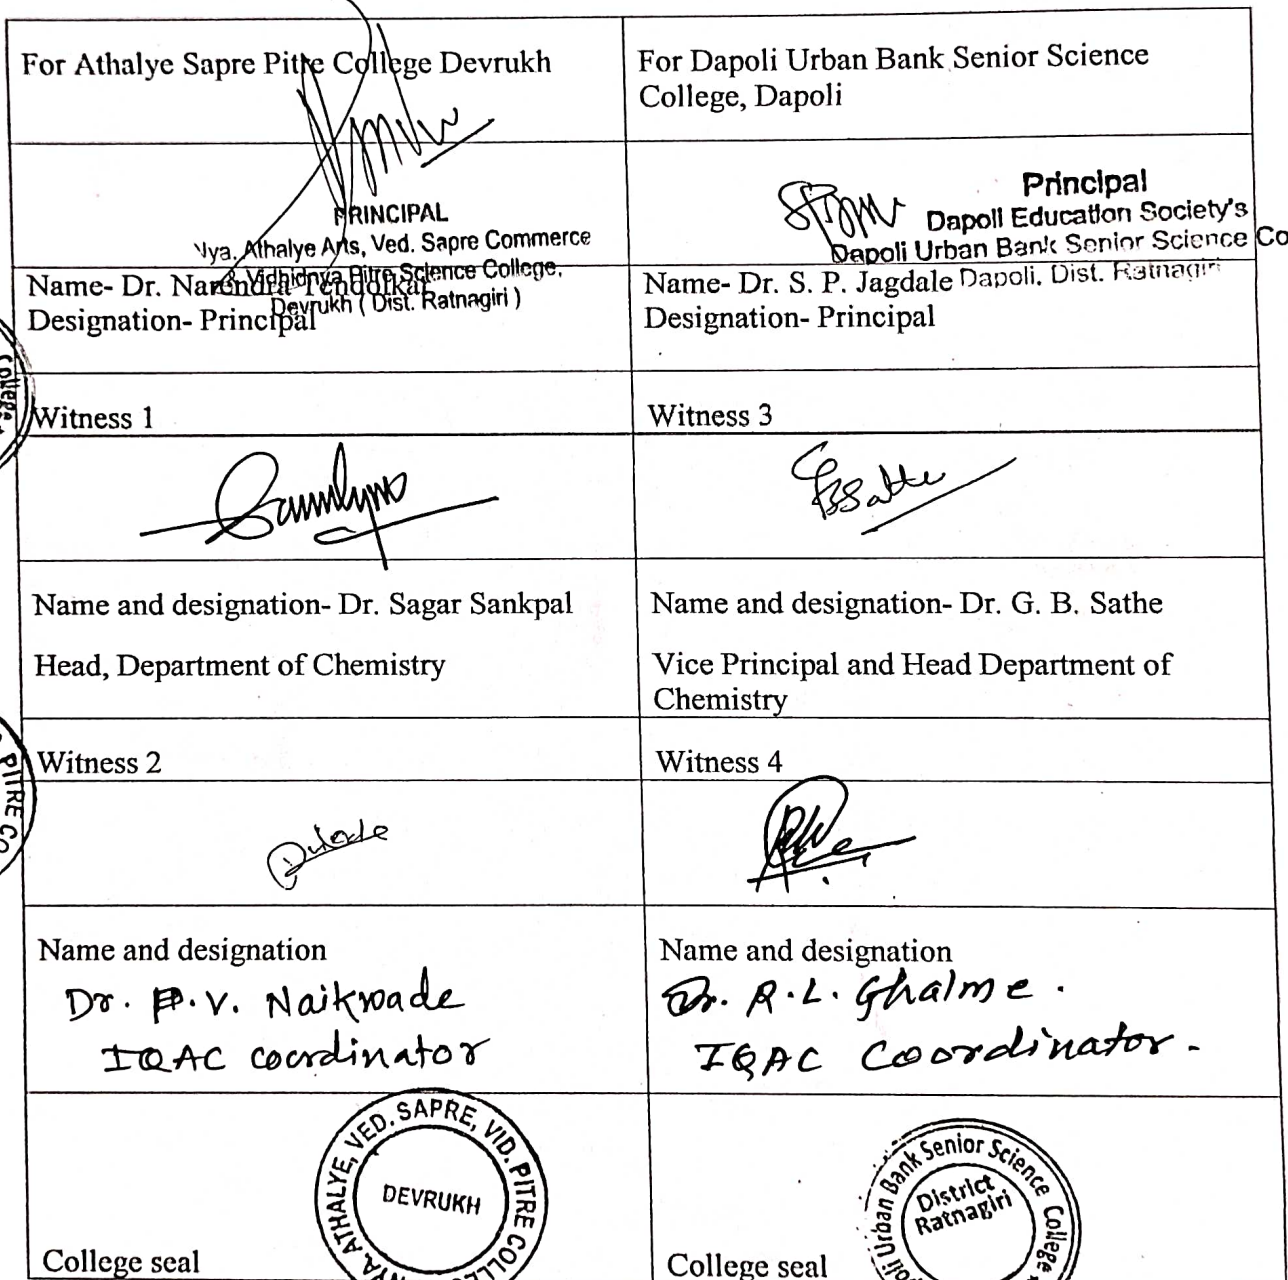 For Athalye Sapre Pitre College Devrukh
For Dapoli Urban Bank Senior Science
College, Dapoli
PRINCIPAL
Nya. Athalye Arts, Ved. Sapre Commerce
& Vidhidnya Pitre Science College,
Devrukh ( Dist. Ratnagiri )
Principal
Dapoli Education Society's
Dapoli Urban Bank Senior Science Co
Dapoli. Dist. Ratnagiri
Name- Dr. Narendra Tendolkar
Designation- Principal
Name- Dr. S. P. Jagdale
Designation- Principal
Witness 1
Witness 3
GBSathe
Name and designation- Dr. Sagar Sankpal
Head, Department of Chemistry
Name and designation- Dr. G. B. Sathe
Vice Principal and Head Department of
Chemistry
Witness 2
Witness 4
Name and designation
Dr. P.V. Naikwade
IQAC coordinator
Name and designation
Dr. R.L. Ghalme.
IQAC Coordinator.
College seal
NYA. ATHALYE, VED. SAPRE, VID. PITRE COLLE
DEVRUKH
College seal
poli Urban Bank Senior Science College
District
Ratnagiri
College
PITRE CO